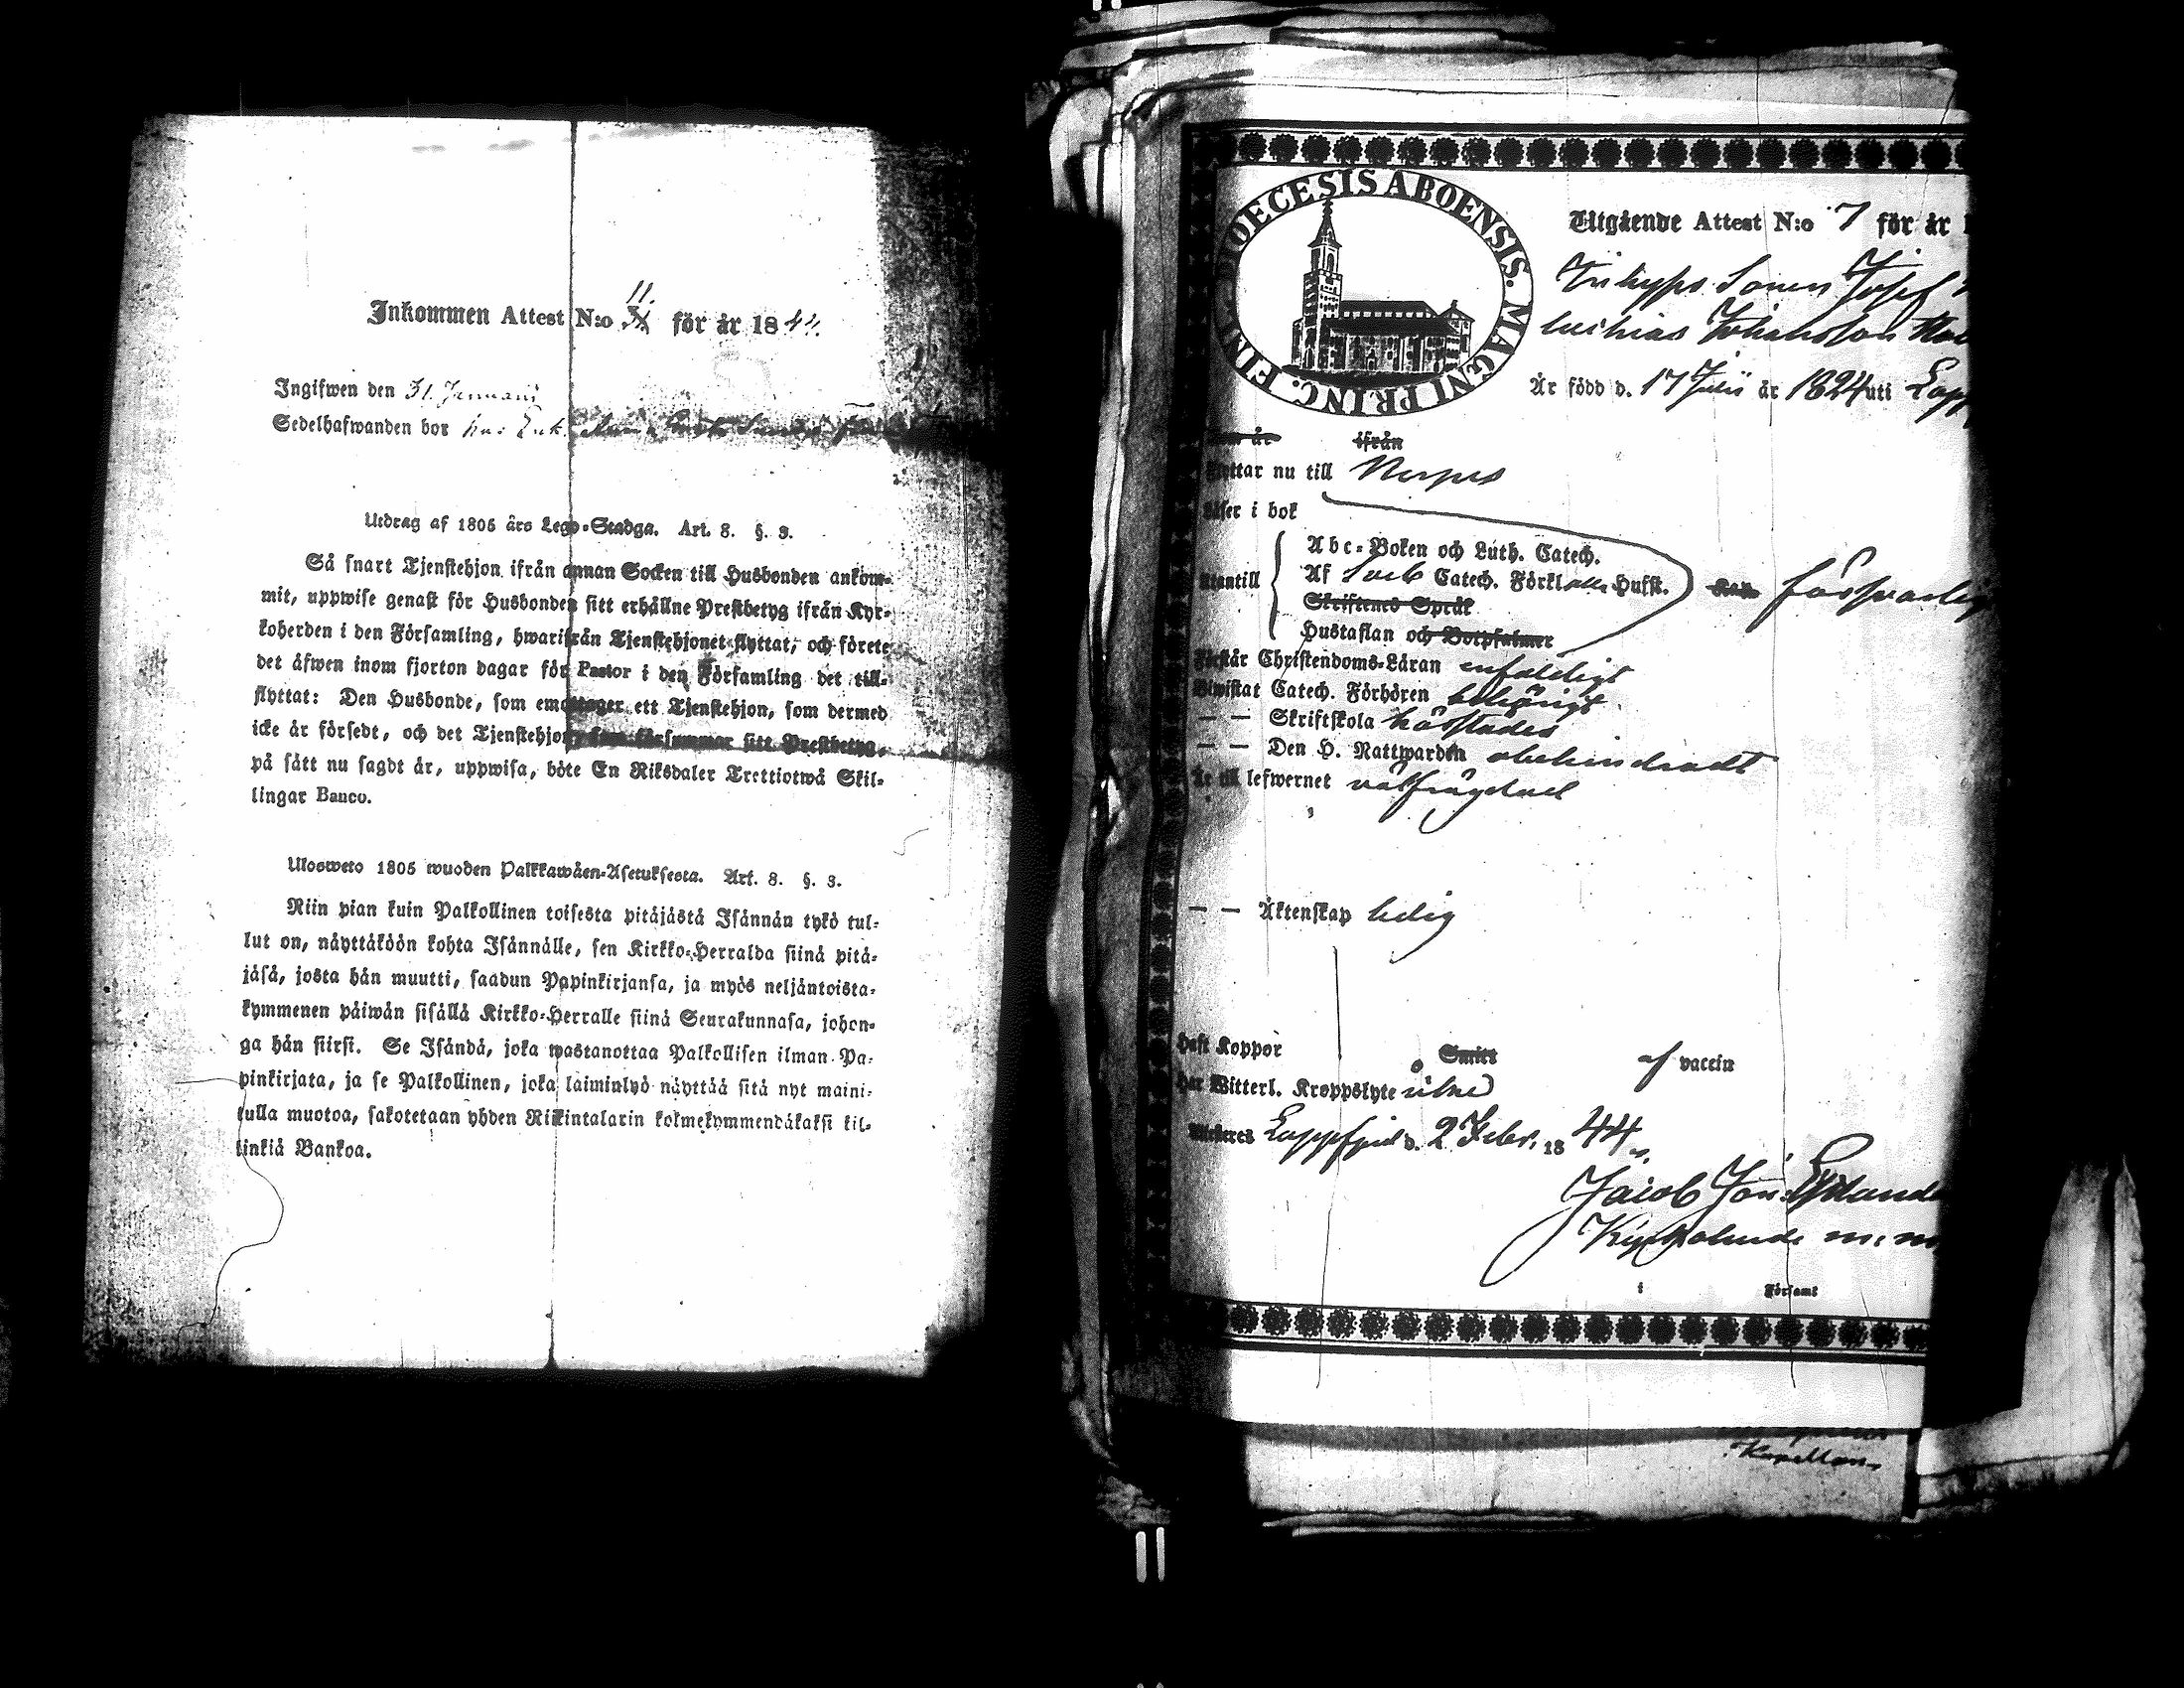 Inkommen Attest N:o 11. för år 1844.
Ingifwen den 31 Januari
Sedelhafwanden bor hos Enk.
Utdrag af 1805 års Lego-Stadga. Art. 8. §. 3.
Så snart Tjenstehjon ifrån annan Socken till Husbonden ankom-
mit, uppwise genast för Husbonden sitt erhållne Prestbetyg ifrån Kyr-
koherden i den Församling, hwarifrån Tjenstehjonet flyttat, och förete
det äfwen inom fjorton dagar för Pastor i den Församling det till-
flyttat: Den Husbonde, som emottager ett Tjenstehjon, som dermed
icke är försedt, och det Tjenstehjon, som försummar sitt Prestbetyg,
på sätt nu sagdt är, uppwisa, böte En Riksdaler Trettiotwå Skil-
lingar Banco.
Ulosweto 1805 wuoden Palkkawäen-Asetuksesta. Art. 8. §. 3.
Niin pian kuin Palkollinen toisesta pitäjästä Isännän tykö tul-
lut on, näyttäköön kohta Isännälle, sen Kirkko-Herralda siinä pitä-
jäsä, josta hän muutti, saadun Papinkirjansa, ja myös neljäntoista-
kymmenen päiwän sisällä Kirkko-Herralle siinä Seurakunnasa, johon-
ga hän siirsi. Se Isändä, joka wastanottaa Palkollisen ilman Pa-
pinkirjata, ja se Palkollinen, joka laiminlyö näyttää sitä nyt maini-
tulla muotoa, sakotetaan yhden Riikintalarin kolmekymmendäkaksi kil-
linkiä Bankoa.
DIOECESIS ABOENSIS. MAGNI PRINC. FINL.
Utgående Attest N:o 7 för år 1
Inhyses Sonen Josef
Johansson
Är född d. 17 Julii år 1824 uti Lapp
Som är ifrån
Flyttar nu till Nerpes
Läser i bok
Abc-Boken och Luth. Catech.
Utantill Af Sveb Catech. Förkl. alla Hufst. Kan försvarlig
Skriftenes Språk
Hustaflan och Botpsalmer
Förstår Christendoms-Läran enfaldigt
Biwistat Catech. Förhören behörigt
— — Skriftskola härstädes
— — Den H. Nattwarden obehindradt
Är till lefwernet välfrägdad
— — Äktenskap ledig
Haft Koppor Smitt af vaccin
Har Witterl. Kroppslyte icke
Attesteres Lappfjerd d. 2 Febr. 1844.
Jacob Jon.
Kyrkoherde m. m.
i Församl
Kapellan.